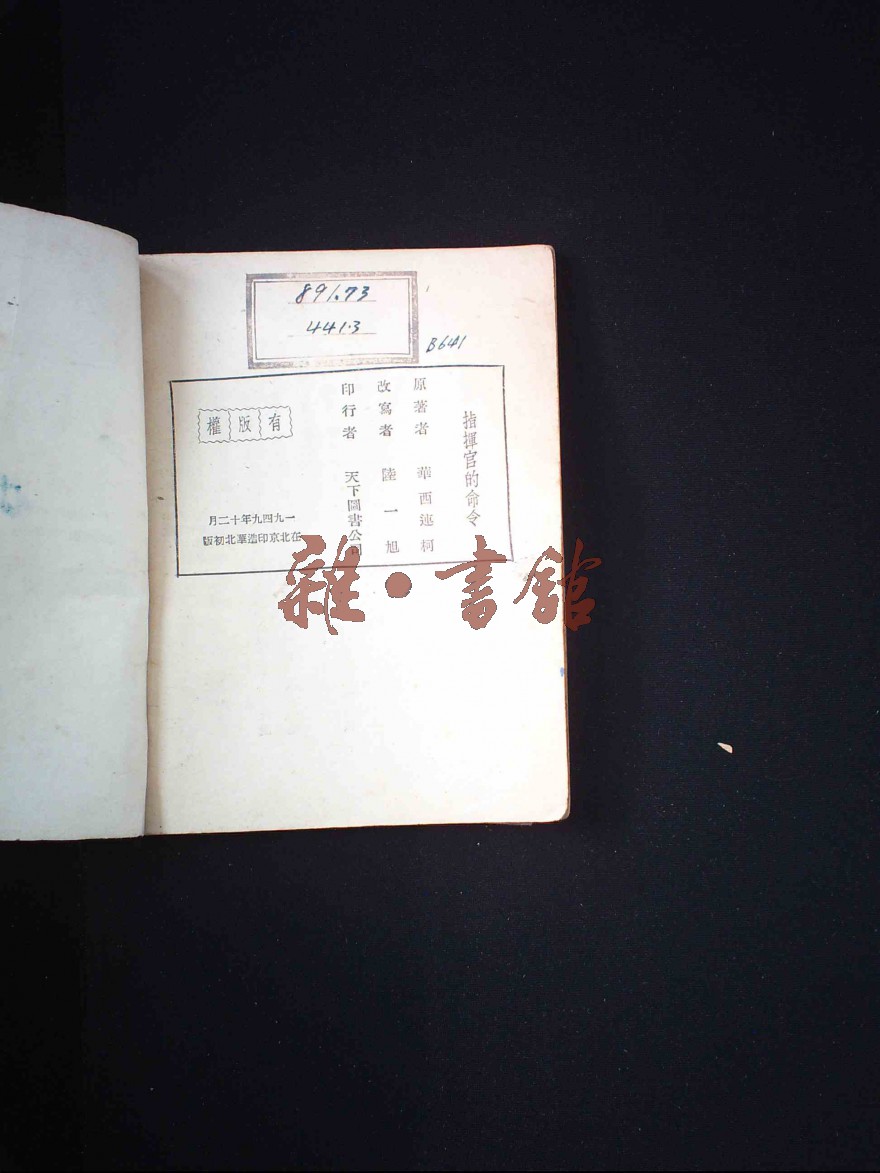 891.73
441.3
B641
指揮官的命令
原著者 華西遠柯
改寫者 陸一旭
印行者 天下圖書公司
有版權
一九四九年十二月
在北京印造華北初版
雜·書館